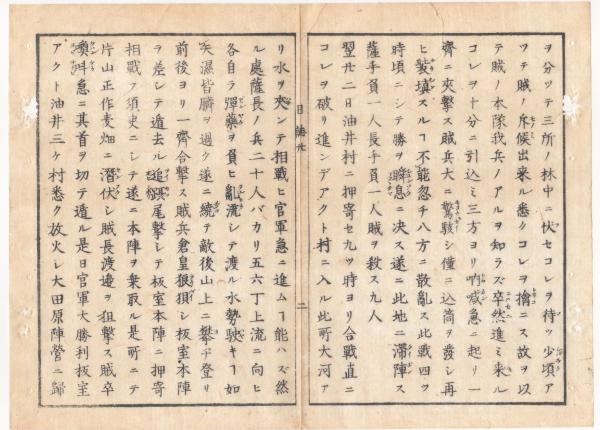 ヲ分ッテ三所ノ林中ニ伏セコレヲ待ツ少頃ア
ッテ賊ノ斥候出来ル悉ク擒ニス故ヲ以
テ賊ノ本隊我兵ノアルヲ知ラズ卒然進ミ来ル
コレヲ十分ニ引込ミ三方ヨリ吶喊急ニ起リ一
齊ニ夾撃ス賊兵大ニ驚駭シ僅ニ込筒ヲ發シ再
ヒ装填スルヿ不能忽チ八方ニ散亂ス此戰四ツ
時頃ニシテ勝ヲ瞬息ニ决ス遂ニ此地ニ滞陣ス
薩手負一人長手負一人賊ヲ殺ス九人
翌廿二日油井村ニ押寄セ九ツ時ヨリ合戰直ニ
コレヲ破リ進ンデアクト村ニ入ル此所大河ア
日誌
二
リ水ヲ夾ンテ相戰ヒ官軍急ニ進ムヿ能ハズ然
ル處薩長ノ兵二十人バカリ五六丁上流ニ向ヒ
各自ラ彈藥ヲ負ヒ亂流シテ渡ル水勢駛キヿ如
矢濕皆臍ヲ過ク遂ニ繞テ敵後山上ニ攀ヂ登リ
前後ヨリ一齊合撃ス賊兵倉皇狼狽シ板室本陣
ヲ差シテ遁去ル追躡尾撃シテ板室本陣ニ押寄
相戰フ須史ニシテ遂ニ本陣ヲ乗取ル是所ニテ
片山正作麦畑ニ潜伏シ賊長渡邉ヲ狙撃ス賊卒
喚叫急ニ其首ヲ切テ遁ル是日官軍大勝利板室
アクト油井三ケ村悉ク放火シ大田原陣營ニ歸